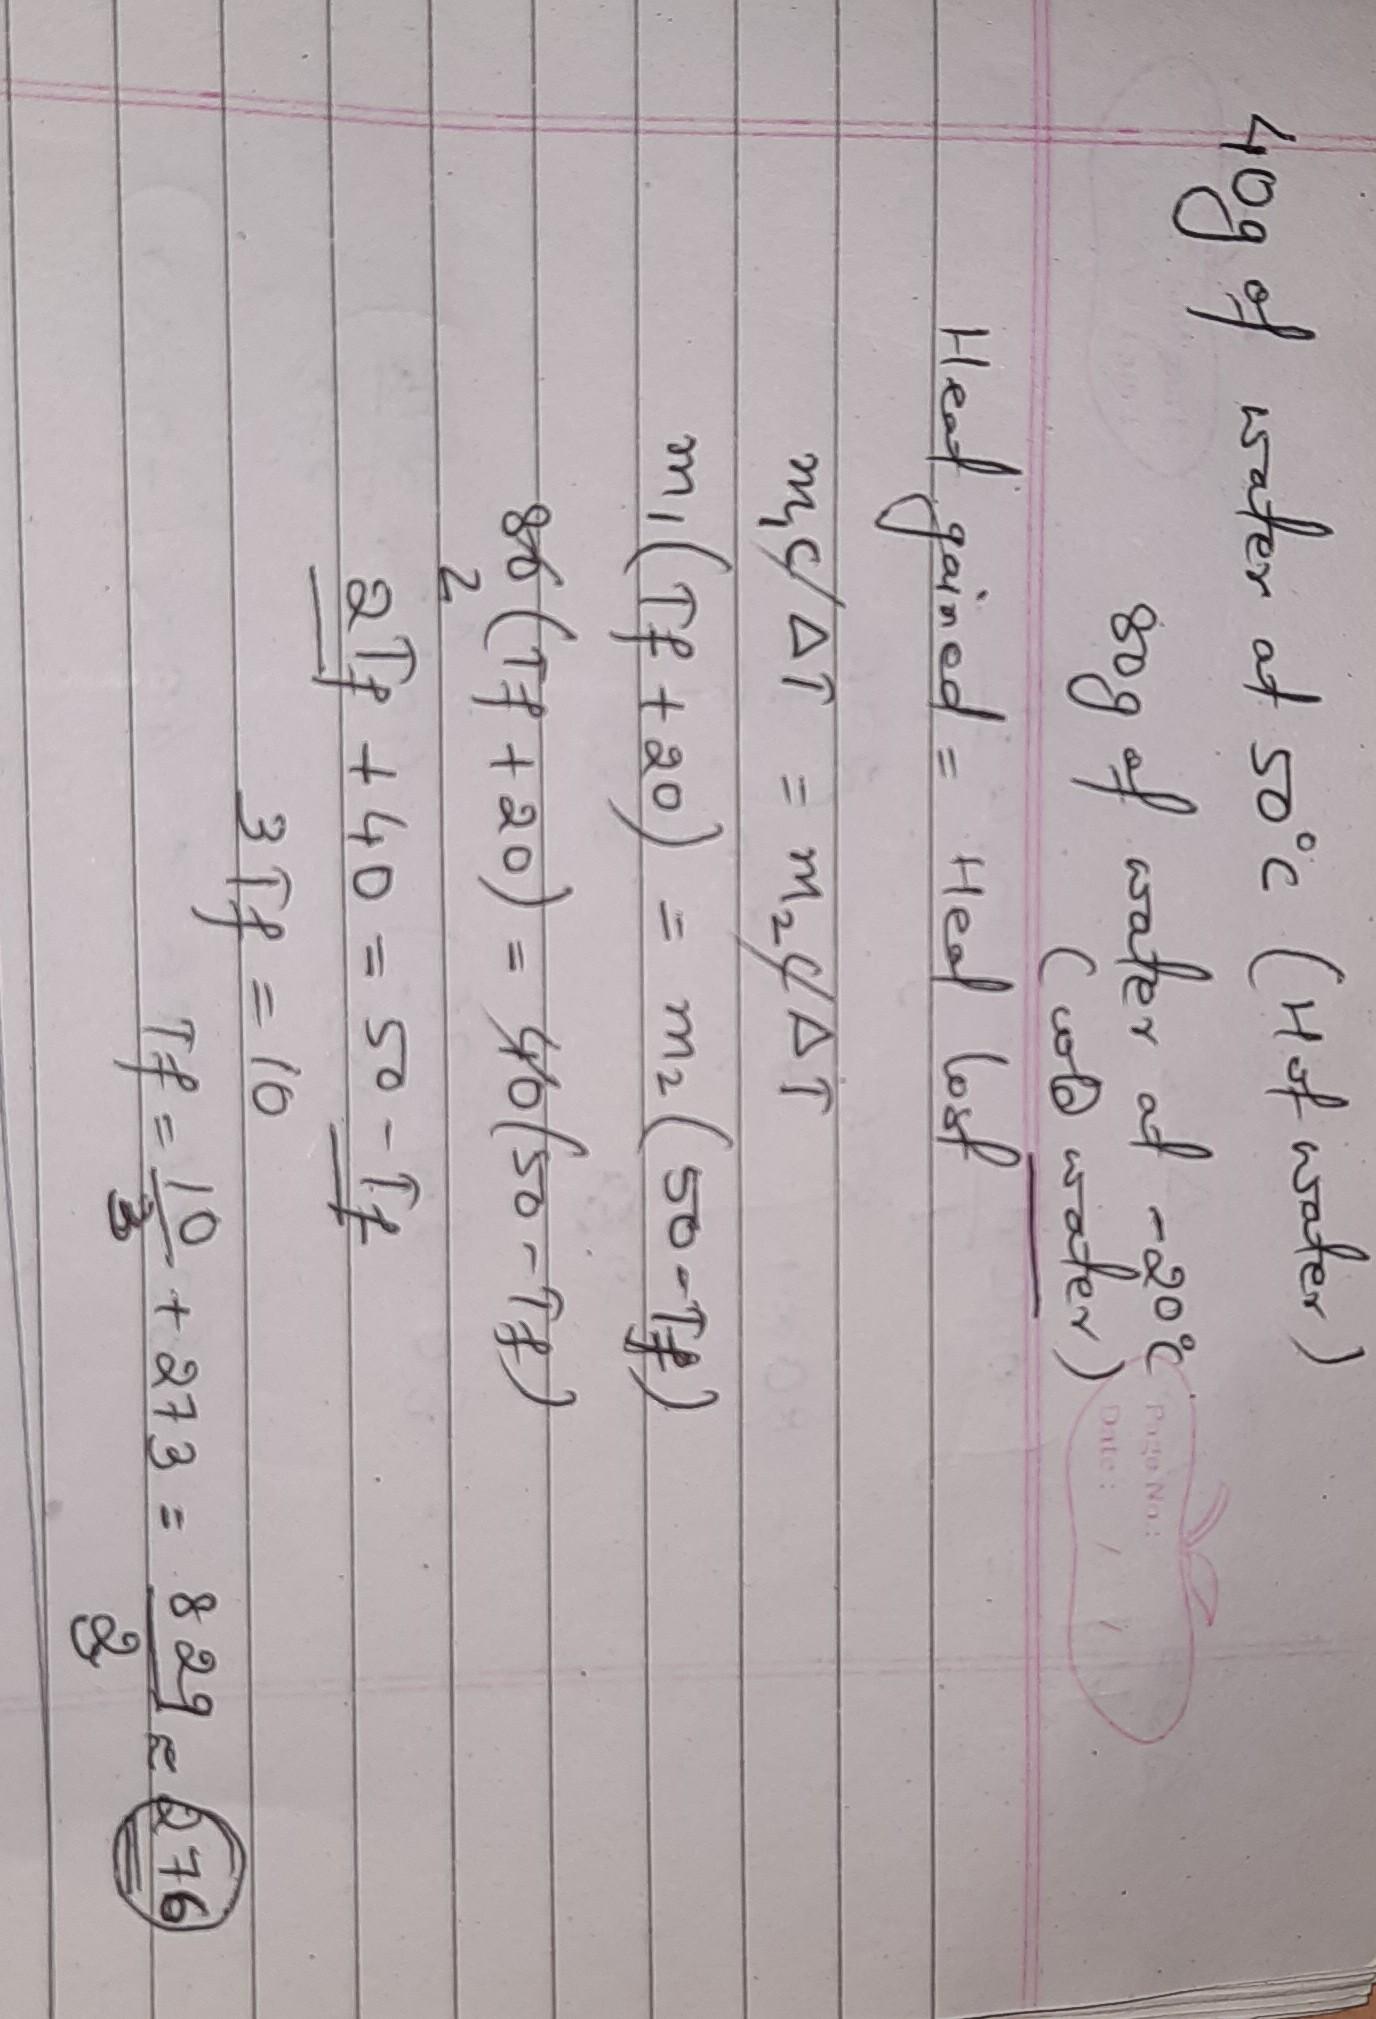 40g of water at 50°C (Hot water)
80g of water at -20°C
(cold water)
Page No.:
Date: / /
Heat gained = Heat lost
m₁c ΔT = m₂c ΔT
m₁(Tf + 20) = m₂(50 - Tf)
80(Tf + 20) = 40(50 - Tf)
2
2Tf + 40 = 50 - Tf
3Tf = 10
Tf = 10/3 + 273 = 829/3 ≈ 276